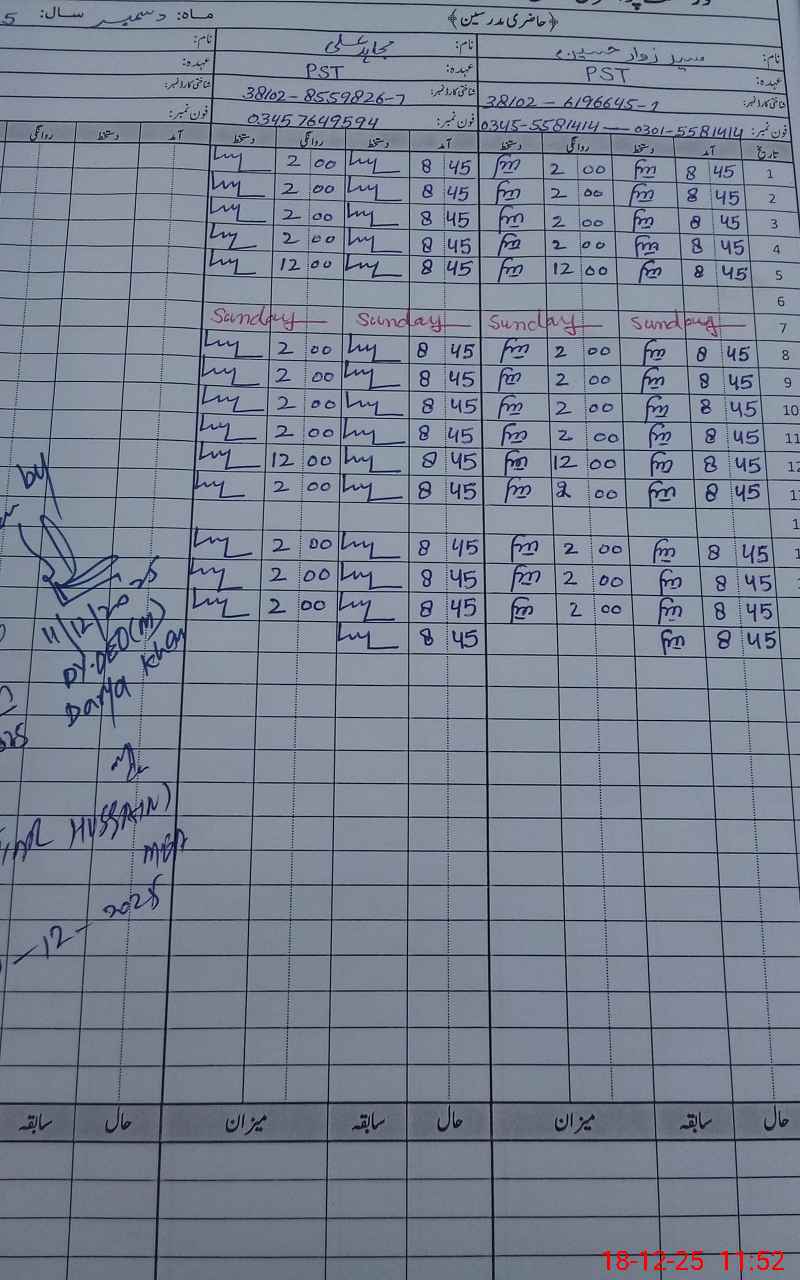 ﴿حاضری مدرسین﴾
ماہ: دسمبر سال: 5
نام: سید زوار حسین
نام: مجاہد علی
نام:
عہدہ: PST
عہدہ: PST
عہدہ:
شناختی کارڈ نمبر: 38102-6196645-1
شناختی کارڈ نمبر: 38102-8559826-7
شناختی کارڈ نمبر:
فون نمبر: 0345-5581414 — 0301-5581414
فون نمبر: 03457649594
فون نمبر:
تاریخ آمد دستخط روانگی دستخط آمد دستخط روانگی دستخط آمد دستخط روانگی
1 8 45 2 00 8 45 2 00
2 8 45 2 00 8 45 2 00
3 8 45 2 00 8 45 2 00
4 8 45 2 00 8 45 2 00
5 8 45 12 00 8 45 12 00
6
7 Sunday Sunday Sunday Sunday
8 8 45 2 00 8 45 2 00
9 8 45 2 00 8 45 2 00
10 8 45 2 00 8 45 2 00
11 8 45 2 00 8 45 2 00
12 8 45 12 00 8 45 12 00
8 45 2 00 8 45 2 00
8 45 2 00 8 45 2 00
8 45 2 00 8 45 2 00
8 45 2 00 8 45 2 00
8 45 8 45
by
11/12/2025
DY.DEO(M)
Darya Khan
HUSSAIN)
MEA
-12-2025
حال سابقہ میزان حال سابقہ میزان حال سابقہ
18-12-25 11:52